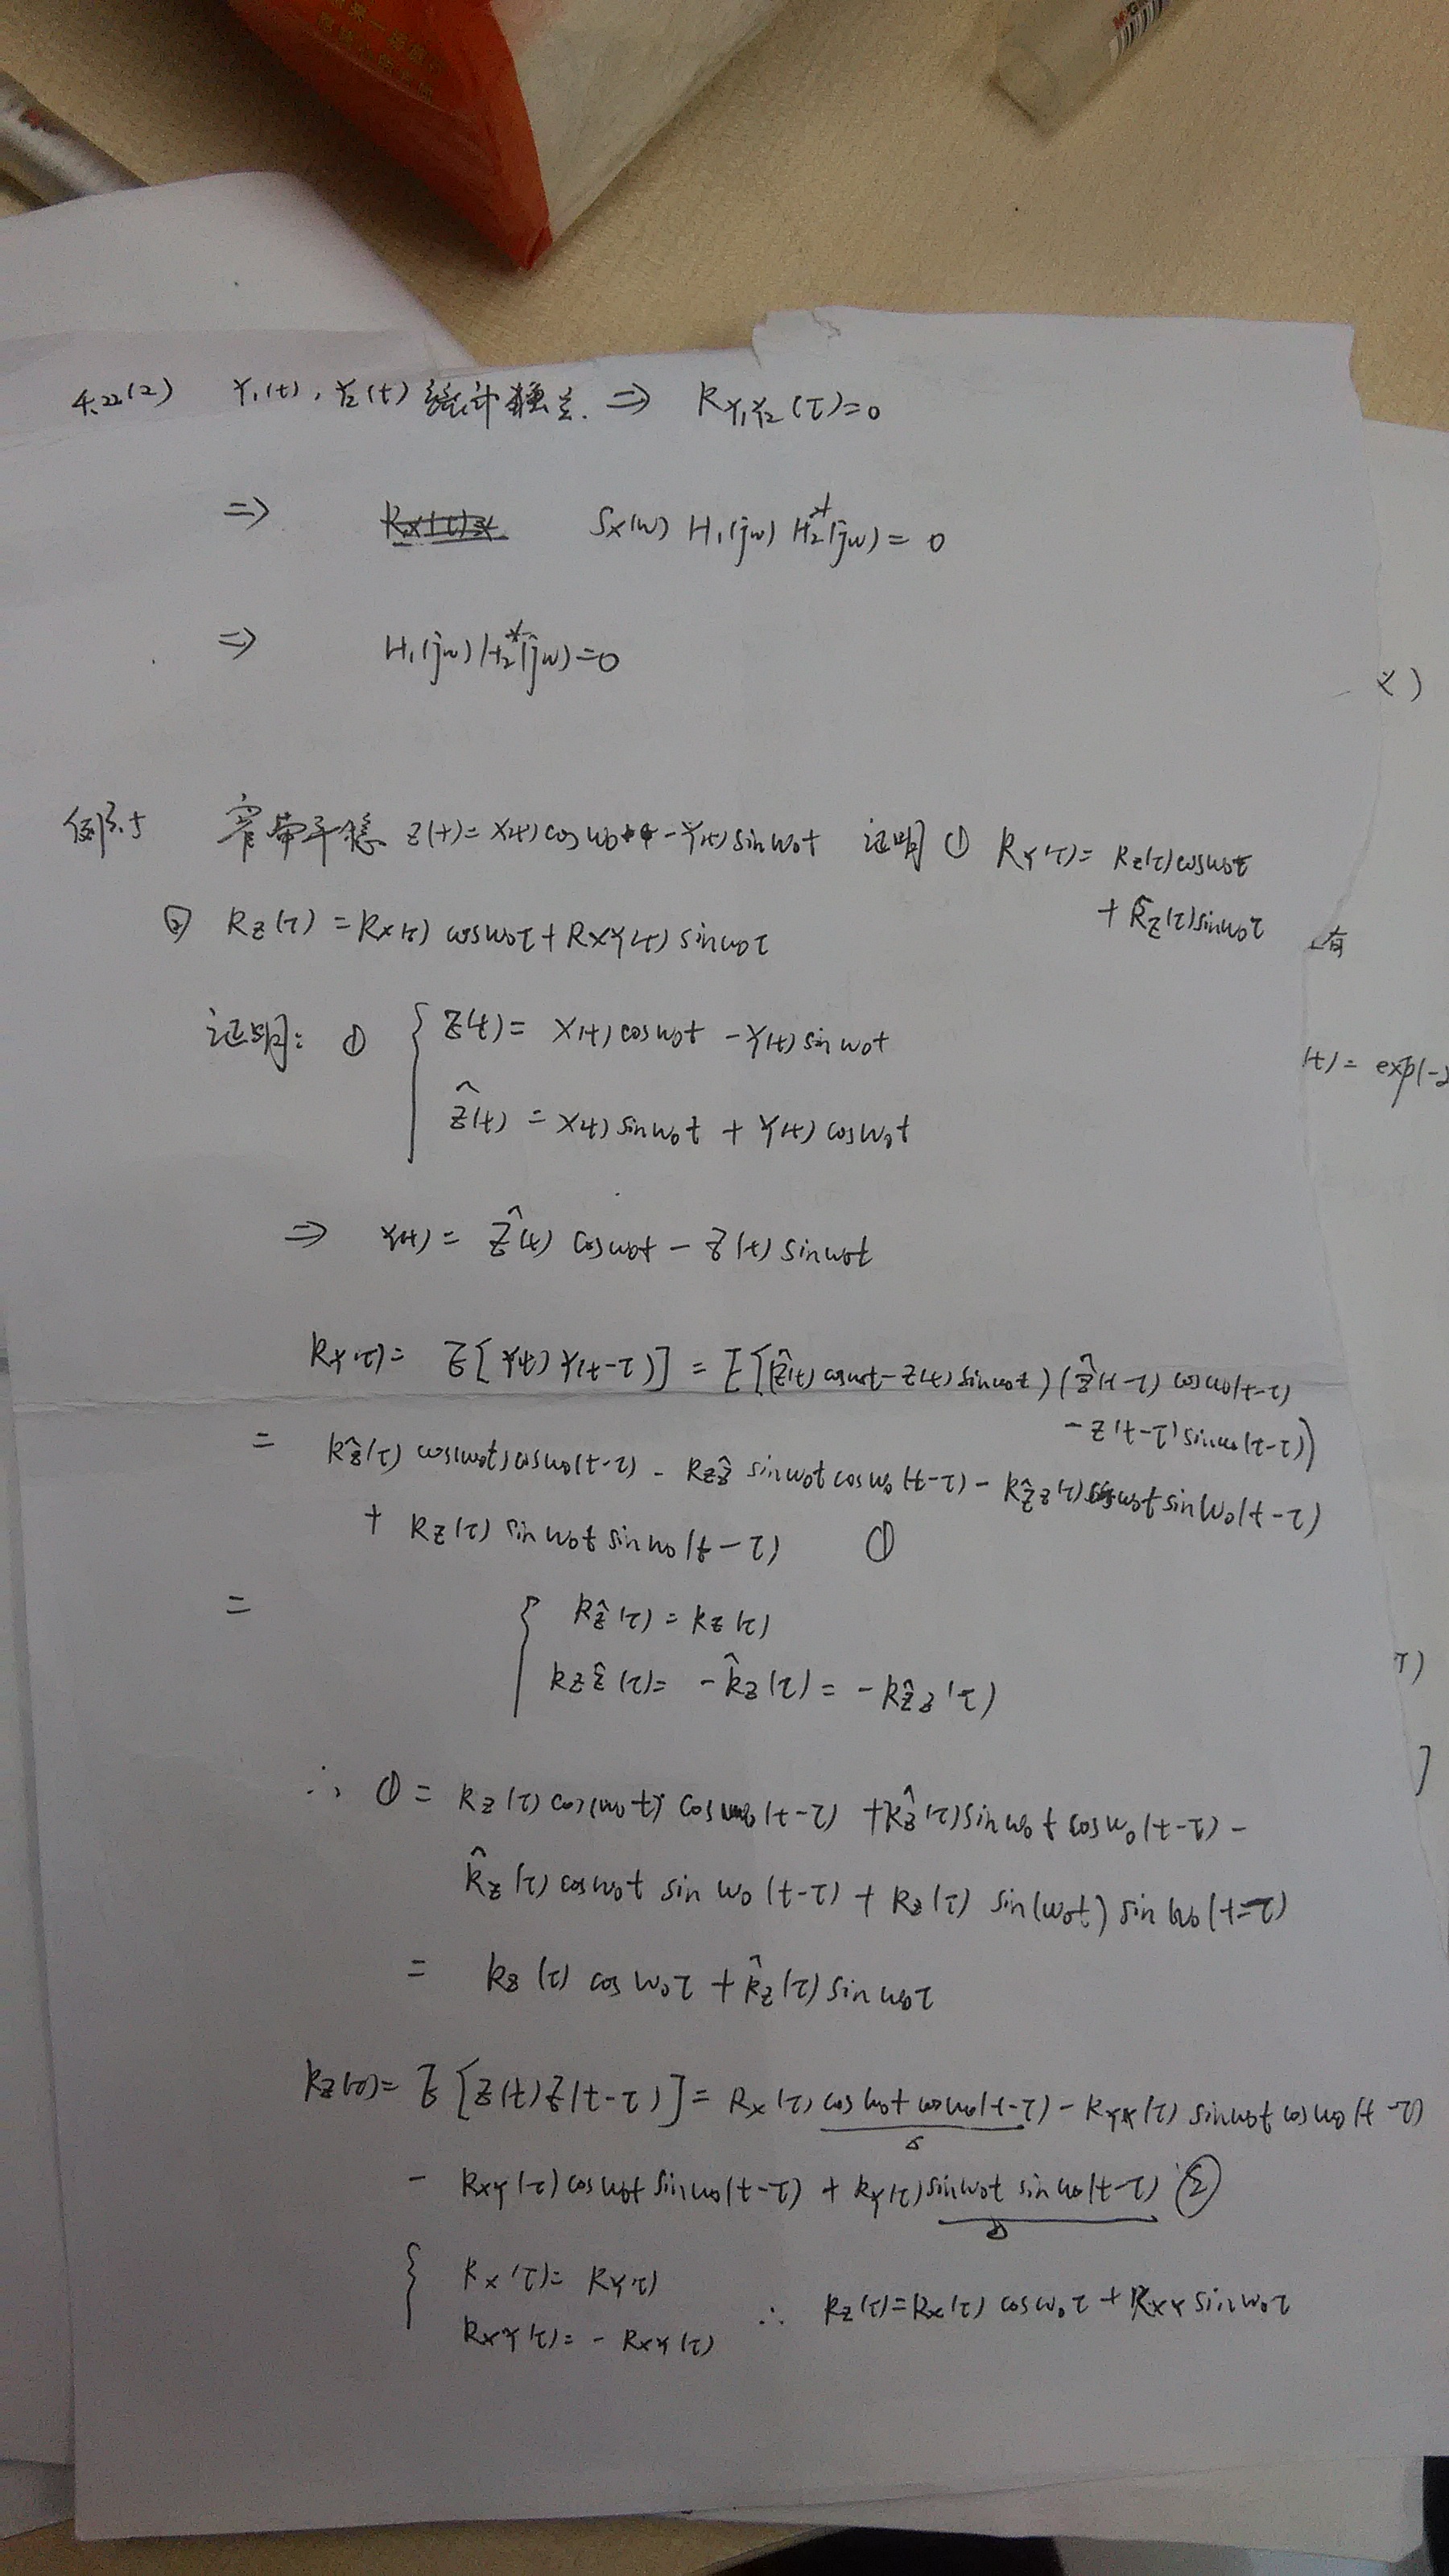 4.22(2) Y₁(t), Y₂(t) 统计独立. ⇒ R_{Y₁Y₂}(τ)=0
⇒ S_X(ω) H₁(jω) H₂*(jω) = 0
⇒ H₁(jω) H₂*(jω)=0
例3.5 窄带平稳 Z(t)= X(t) cos ω₀t - Y(t) sin ω₀t 证明 ① R_Y(τ)= R_Z(τ) cos ω₀τ
+ R̂_Z(τ) sin ω₀τ
② R_Z(τ) = R_X(τ) cos ω₀τ + R_{XY}(τ) sin ω₀τ
证明: ① { Z(t) = X(t) cos ω₀t - Y(t) sin ω₀t
Ẑ(t) = X(t) sin ω₀t + Y(t) cos ω₀t
⇒ Y(t) = Ẑ(t) cos ω₀t - Z(t) sin ω₀t
R_Y(τ) = E[Y(t) Y(t-τ)] = E[(Ẑ(t) cos ω₀t - Z(t) sin ω₀t) (Ẑ(t-τ) cos ω₀(t-τ)
- Z(t-τ) sin ω₀(t-τ))
= R_Ẑ(τ) cos(ω₀t) cos ω₀(t-τ) - R_{ZẐ} sin ω₀t cos ω₀(t-τ) - R_{ẐZ}(τ) cos ω₀t sin ω₀(t-τ)
+ R_Z(τ) sin ω₀t sin ω₀(t-τ) ①
= { R_Ẑ(τ) = R_Z(τ)
R_{ZẐ}(τ) = - R̂_Z(τ) = - R_{ẐZ}(τ)
∴ ① = R_Z(τ) cos(ω₀t) cos ω₀(t-τ) + R̂_Z(τ) sin ω₀t cos ω₀(t-τ) -
R̂_Z(τ) cos ω₀t sin ω₀(t-τ) + R_Z(τ) sin(ω₀t) sin ω₀(t-τ)
= R_Z(τ) cos ω₀τ + R̂_Z(τ) sin ω₀τ
R_Z(τ) = E[Z(t) Z(t-τ)] = R_X(τ) cos ω₀t cos ω₀(t-τ) - R_{YX}(τ) sin ω₀t cos ω₀(t-τ)
- R_{XY}(τ) cos ω₀t sin ω₀(t-τ) + R_Y(τ) sin ω₀t sin ω₀(t-τ) ②
{ R_X(τ) = R_Y(τ)
R_{XY}(τ) = - R_{XY}(τ) ∴ R_Z(τ) = R_X(τ) cos ω₀τ + R_{XY} sin ω₀τ
有
(t) = exp(-
τ)
]